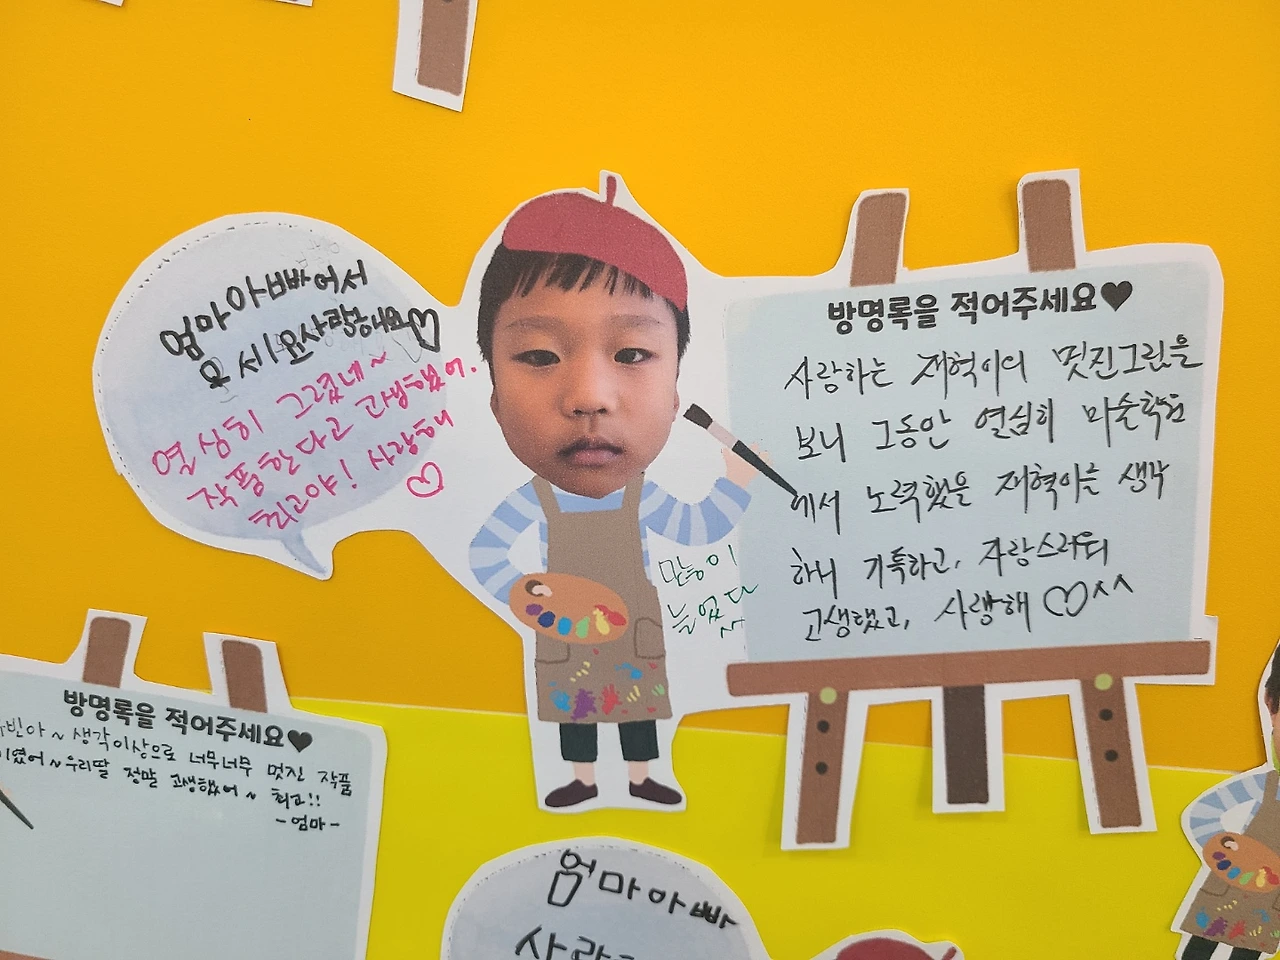 엄마아빠어서
오세요사랑해요♡
열심히 그렸네~
작품한다고 고생했어.
최고야! 사랑해
♡
만능이
늘었다
방명록을 적어주세요♥
사랑하는 재혁이의 멋진그림을
보니 그동안 열심히 미술학원
에서 노력했을 재혁이를 생각
하니 기특하고, 자랑스러워
고생했고, 사랑해 ♡^^
방명록을 적어주세요♥
빈아~ 생각이상으로 너무너무 멋진 작품
이였어~우리딸 정말 고생했어~ 최고!!
-엄마-
엄마아빠
사랑